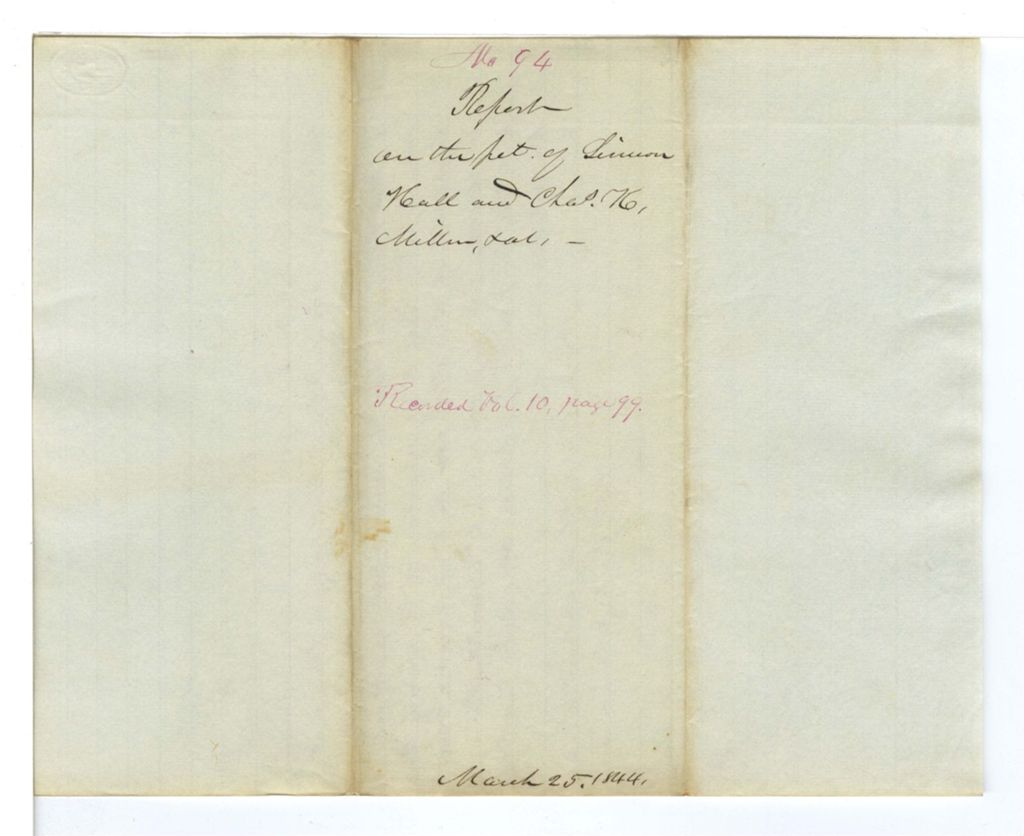 No 94
Report
on the pet. of Simeon
Hall and Chas. H.
Miller, & al. –
Recorded Vol. 10, page 99.
March 25, 1844.